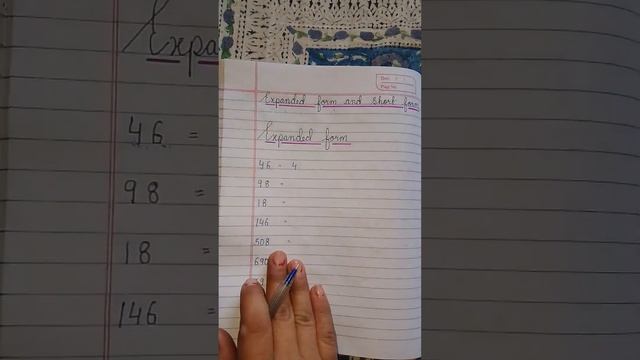 Date
Page No.
Expanded form and Short form
Expanded form
46 = 4
98 =
18 =
146 =
508 =
690
Expa
46 =
98 =
18 =
146